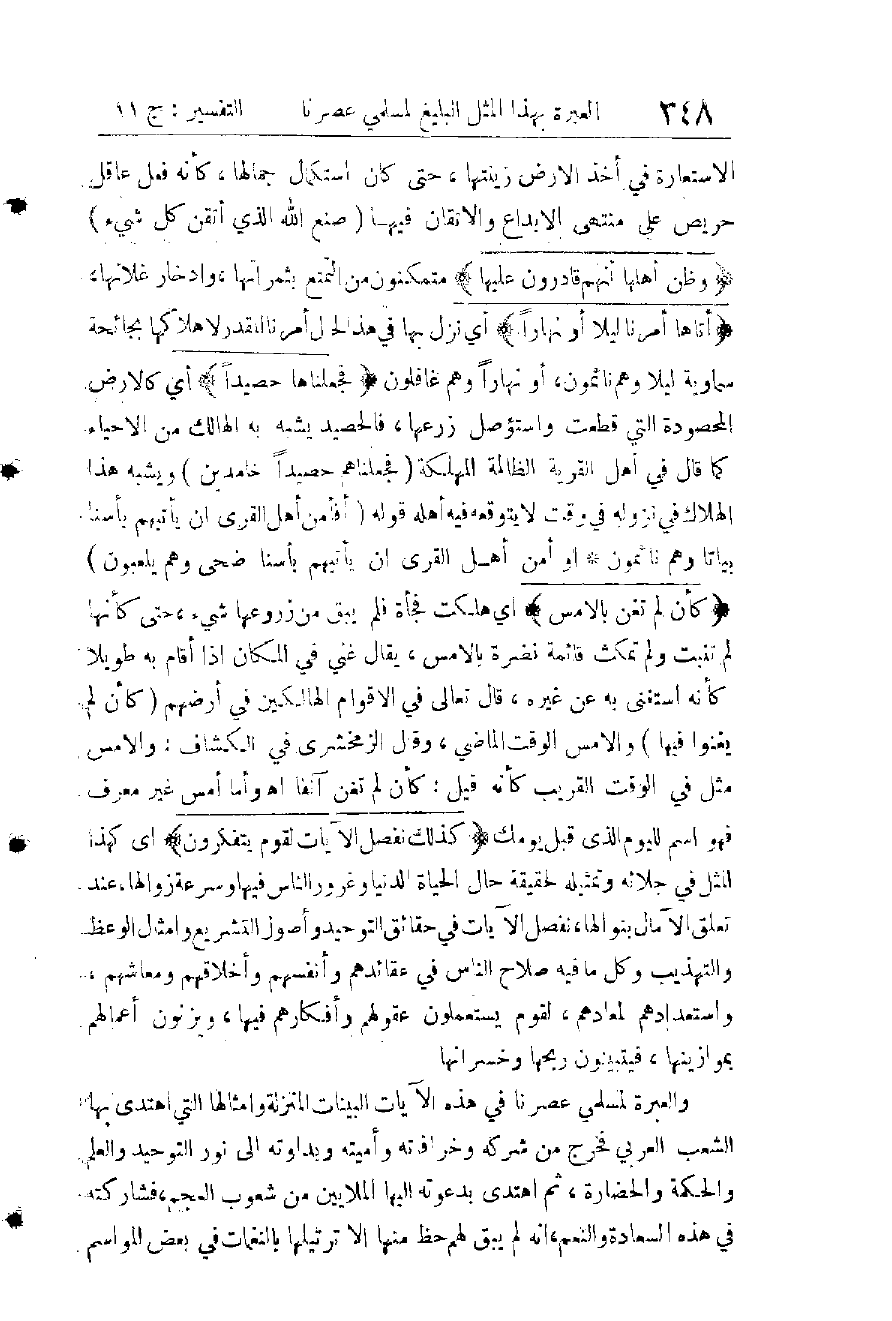 ٣٤٨ العبرة بهذا المثل البليغ لمسلمي عصرنا التفسير : ج ١١
الاستعارة في أخذ الارض زينتها ، حتى كان استكمال جمالها ، كأنه فعل عاقل
حريص على منتهى الابداع والاتقان فيها ( صنع الله الذي أتقن كل شيء )
﴿ وظن أهلها أنهم قادرون عليها ﴾ متمكنون من التمتع بثمراتها ، وادخار غلاتها،
﴿ أتاها أمرنا ليلا أو نهاراً ﴾ أي نزل بها في هذه الحال أمرنا المقدر لاهلاكها بجائحة
سماوية ليلا وهم نائمون، أو نهاراً وهم غافلون ﴿ فجعلناها حصيداً ﴾ أي كالارض
المحصودة التي قطعت واستؤصل زرعها ، فالحصيد يشبه به الهالك من الاحياء
كما قال في أهل القرية الظالمة المهلكة ( فجعلناهم حصيداً خامدين ) ويشبه هذا
الهلاك في نزوله في وقت لا يتوقعه فيه أهله قوله ( أفأمن أهل القرى ان يأتيهم بأسنا
بياتا وهم نائمون * او أمن أهل القرى ان يأتيهم بأسنا ضحى وهم يلعبون )
﴿ كأن لم تغن بالامس ﴾ اي هلكت فجأة فلم يبق من زروعها شيء ، حتى كأنها
لم تنبت ولم تمكث قائمة نضرة بالامس ، يقال غني في المكان اذا أقام به طويلا
كأنه استغنى به عن غيره ، قال تعالى في الاقوام الهالكين في أرضهم ( كأن لم
يغنوا فيها ) والامس الوقت الماضي ، وقال الزمخشرى في الكشاف : والامس
مثل في الوقت القريب كأنه قيل : كأن لم تغن آنفا اه وأما أمس غير معرف
فهو اسم لليوم الذى قبل يومك ﴿ كذلك نفصل الآيات لقوم يتفكرون ﴾ اى كهذا
المثل في جلائه وتمثيله لحقيقة حال الحياة الدنيا وغرور الناس فيها وسرعة زوالها، عند
تعلق الآمال بنوالها، نفصل الآيات في حقائق التوحيد وأصول التشريع وامثال الوعظ
والتهذيب وكل ما فيه صلاح الناس في عقائدهم وأنفسهم وأخلاقهم ومعاشهم ،
واستعدادهم لمعادهم ، لقوم يستعملون عقولهم وأفكارهم فيها ، ويزنون أعمالهم
بموازينها ، فيتبينون ربحها وخسرانها
والعبرة لمسلمي عصرنا في هذه الآيات البينات المنزلة وامثالها التي اهتدى بها
الشعب العربي فخرج من شركه وخرافاته وأميته وبداوته الى نور التوحيد والعلم
والحكمة والحضارة ، ثم اهتدى بدعوته اليها الملايين من شعوب العجم، فشاركته
في هذه السعادة والنعم، انه لم يبق لهم حظ منها الا ترتيلها بالنغمات في بعض المواسم